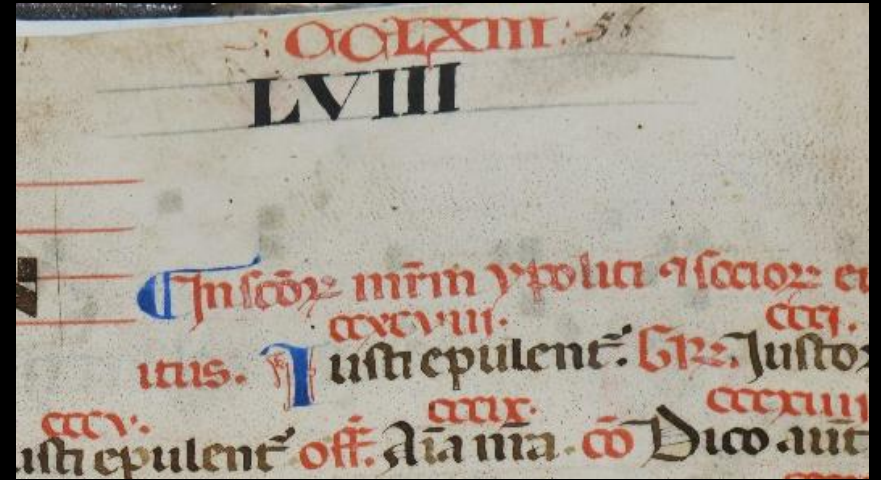 CCLXIII 56
LVIII
In scōꝝ mr̄m ypoliti ⁊ socioꝝ ei
ccxcviii. ccci.
itus. Iusti epulent᷑. Gr̄. Iustoꝝ
cccv. cccix. cccxiiii
usti epulent᷑ off̄. Aīa nr̄a. cō Dico aut̄